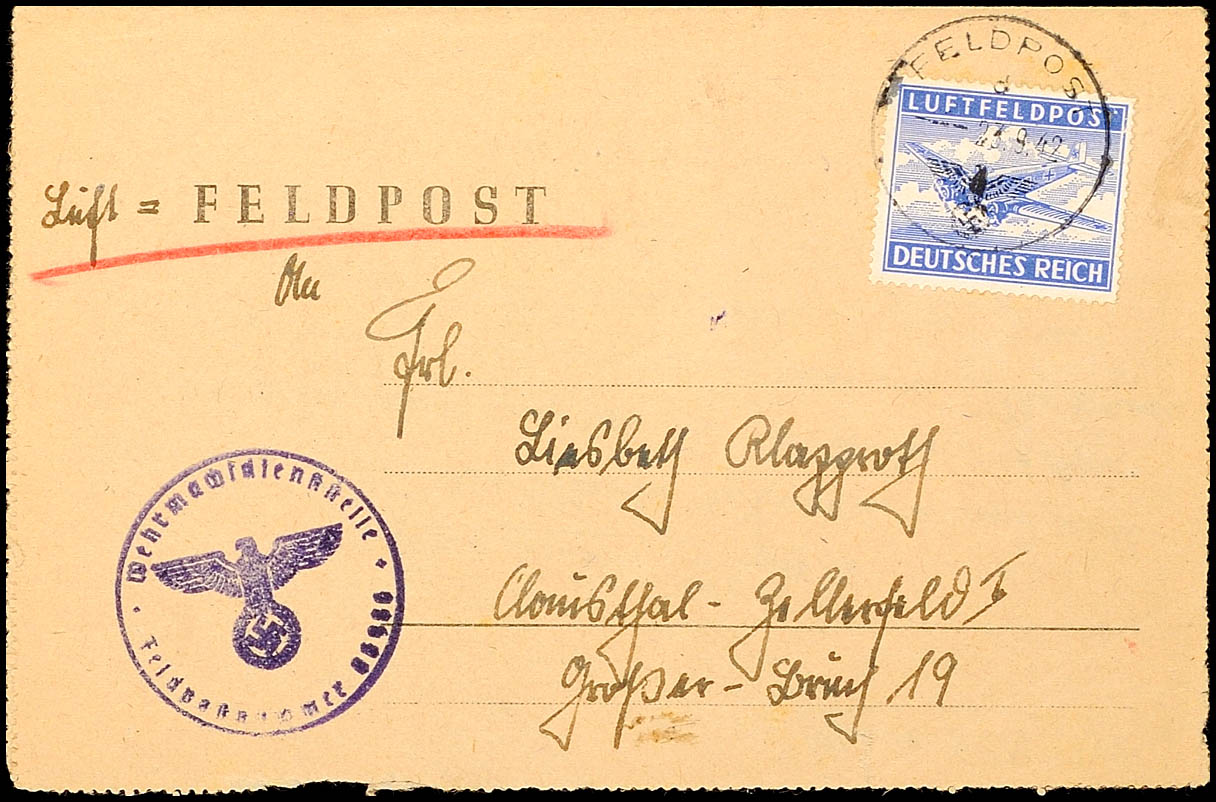 FELDPOST
d
23.9.42
LUFTFELDPOST
DEUTSCHES REICH
Luft = FELDPOST
An
Frl.
Liesbeth Klapproth
Clausthal - Zellerfeld I
Großer - Bruch 19
Wehrmachtdienststelle
Feldpostnummer